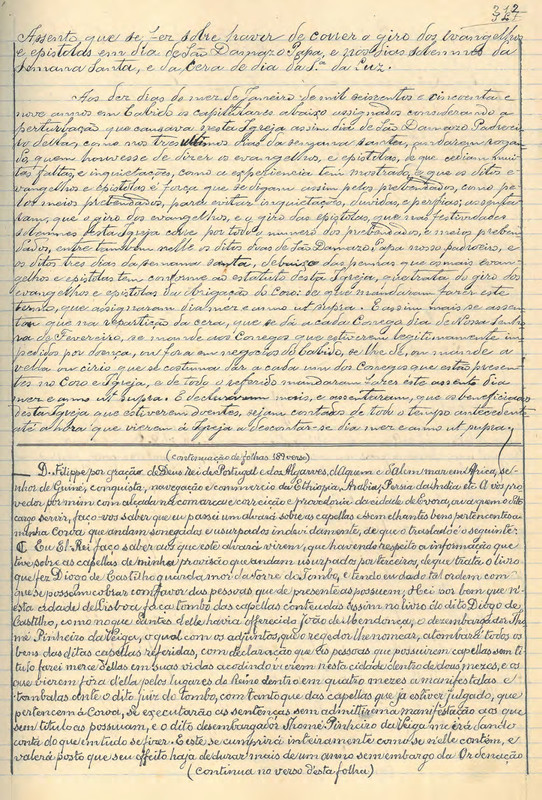 312
Assento, que se fez sobre haver de correr o giro dos evangelhos
e epistolas em dia de São Damazo Papa, e nos dias solemnes da
semana Santa, e da Cera de dia da S.ra da Luz.
Aos dez dias do mez de Janeiro de mil seiscentos e cincoenta e
nove annos em Cabido os capitulares abaixo assignados considerando a
perturbação que causava nesta Igreja assim dia de São Damazo Padroei-
ro della, como nos tres ultimos dias da semana santa, andarem rogan-
do, quem houvesse de dizer os evangelhos, e epistolas, de que cediam mui-
tas faltas, e inquietações, como a experiencia tem mostrado, e que os ditos e-
vangelhos e epistolas é força que se digam assim pelos prebendados, como pe-
los meios prebendados, para evitar inquietações, duvidas, e perfias; assenta-
ram, que o giro dos evangelhos, e o giro das epistolas, que nas festividades
solemnes desta Igreja corre por todo o numero dos prebendados, e meios preben-
dados, entre tambem nelle os ditos dias de São Damazo Papa nosso padroeiro, e
os ditos tres dias da semana santa, debaixo das penas que os mais evan-
gelhos e epistolas tem conforme ao estatuto desta Igreja, que trata do giro dos
evangelhos e epistolas da obrigação do Coro: de que mandaram fazer este
termo, que assignaram dia mez e anno ut supra. E assim mais se assen-
tou que na repartição da cera, que se dá a cada Conego dia de Nossa Senho-
ra de Fevereiro, se mande aos Conegos que estiverem legitimamente im-
pedidos por doença, ou fora em negocios do Cabido, se lhe dê, ou mande a
vella ou cirio que se costuma dar a cada um dos Conegos que estão presen-
tes no Coro e Igreja, e de todo o referido mandaram fazer este assento dia
mez e anno ut supra. E declararam mais, e assentaram, que os beneficiados
desta Igreja que estiverem doentes, sejam contados de todo o tempo antecedente
até a hora que vierem á Igreja a descontar-se dia mez e anno ut supra,
(continuação de folhas 189 verso)
D. Filippe por graça de Deus rei de Portugal e dos Algarves, d'Aquem e d'alem mar em Africa, se-
nhor de Guiné, conquista, navegação e commercio da Ethiopia, Arabia, Persia da India etc. A vós pro-
vedor por mim com alçada na comarca e correição e provedoria da cidade de Evora, ou a quem o dito
cargo servir, faço-vos saber que eu passei um alvará sobre as capellas e semelhantes bens pertencentes a
minha Coroa que andam sonegados e usurpados individamente, de que o traslado é o seguinte:
Eu El-Rei faço saber aos que este alvará virem, que havendo respeito a informação que
tive sobre as capellas de minha provisão que andam usurpadas por terceiros, de que trata o livro
que fez Diogo de Castilho guarda mór da Torre do Tombo, e tendo eu dado tal ordem com
que se possam cobrar com favor das pessoas que de presente as possuem; Hei por bem que n'
esta cidade de Lisboa faça tombo das capellas contheudas assim no livro do dito Diogo de
Castilho, como no que dantes delle havia offerecido João de Mendonça, o dezembargador Tho-
mé Pinheiro da Veiga, o qual com os adjuntos, que o regedor lhe nomear, alombará todos os
bens das ditas capellas referidas, com declaração que ás pessoas que possuirem capellas sem ti-
tulo farei merce d'ellas em suas vidas acodindo virem nesta cidade dentro de dous mezes, e os
que vierem fóra della pelos lugares do Reino dentro em quatro mezes a manifestalas e
tombalas ante o dito juiz do tombo, com tanto que das capellas que já estiver julgado, que
pertencem á Coroa, se executarão as sentenças sem admittirem a manifestação aos que
sem titulo as possuam, e o dito desembargador Thomé Pinheiro da Veiga me irá dando
conta do que em tudo se fizer. E este se cumprirá inteiramente como se n'elle contém, e
valerá posto que seu effeito haja de durar mais de um anno sem embargo da Ordenação
(continua no verso d'esta folha)